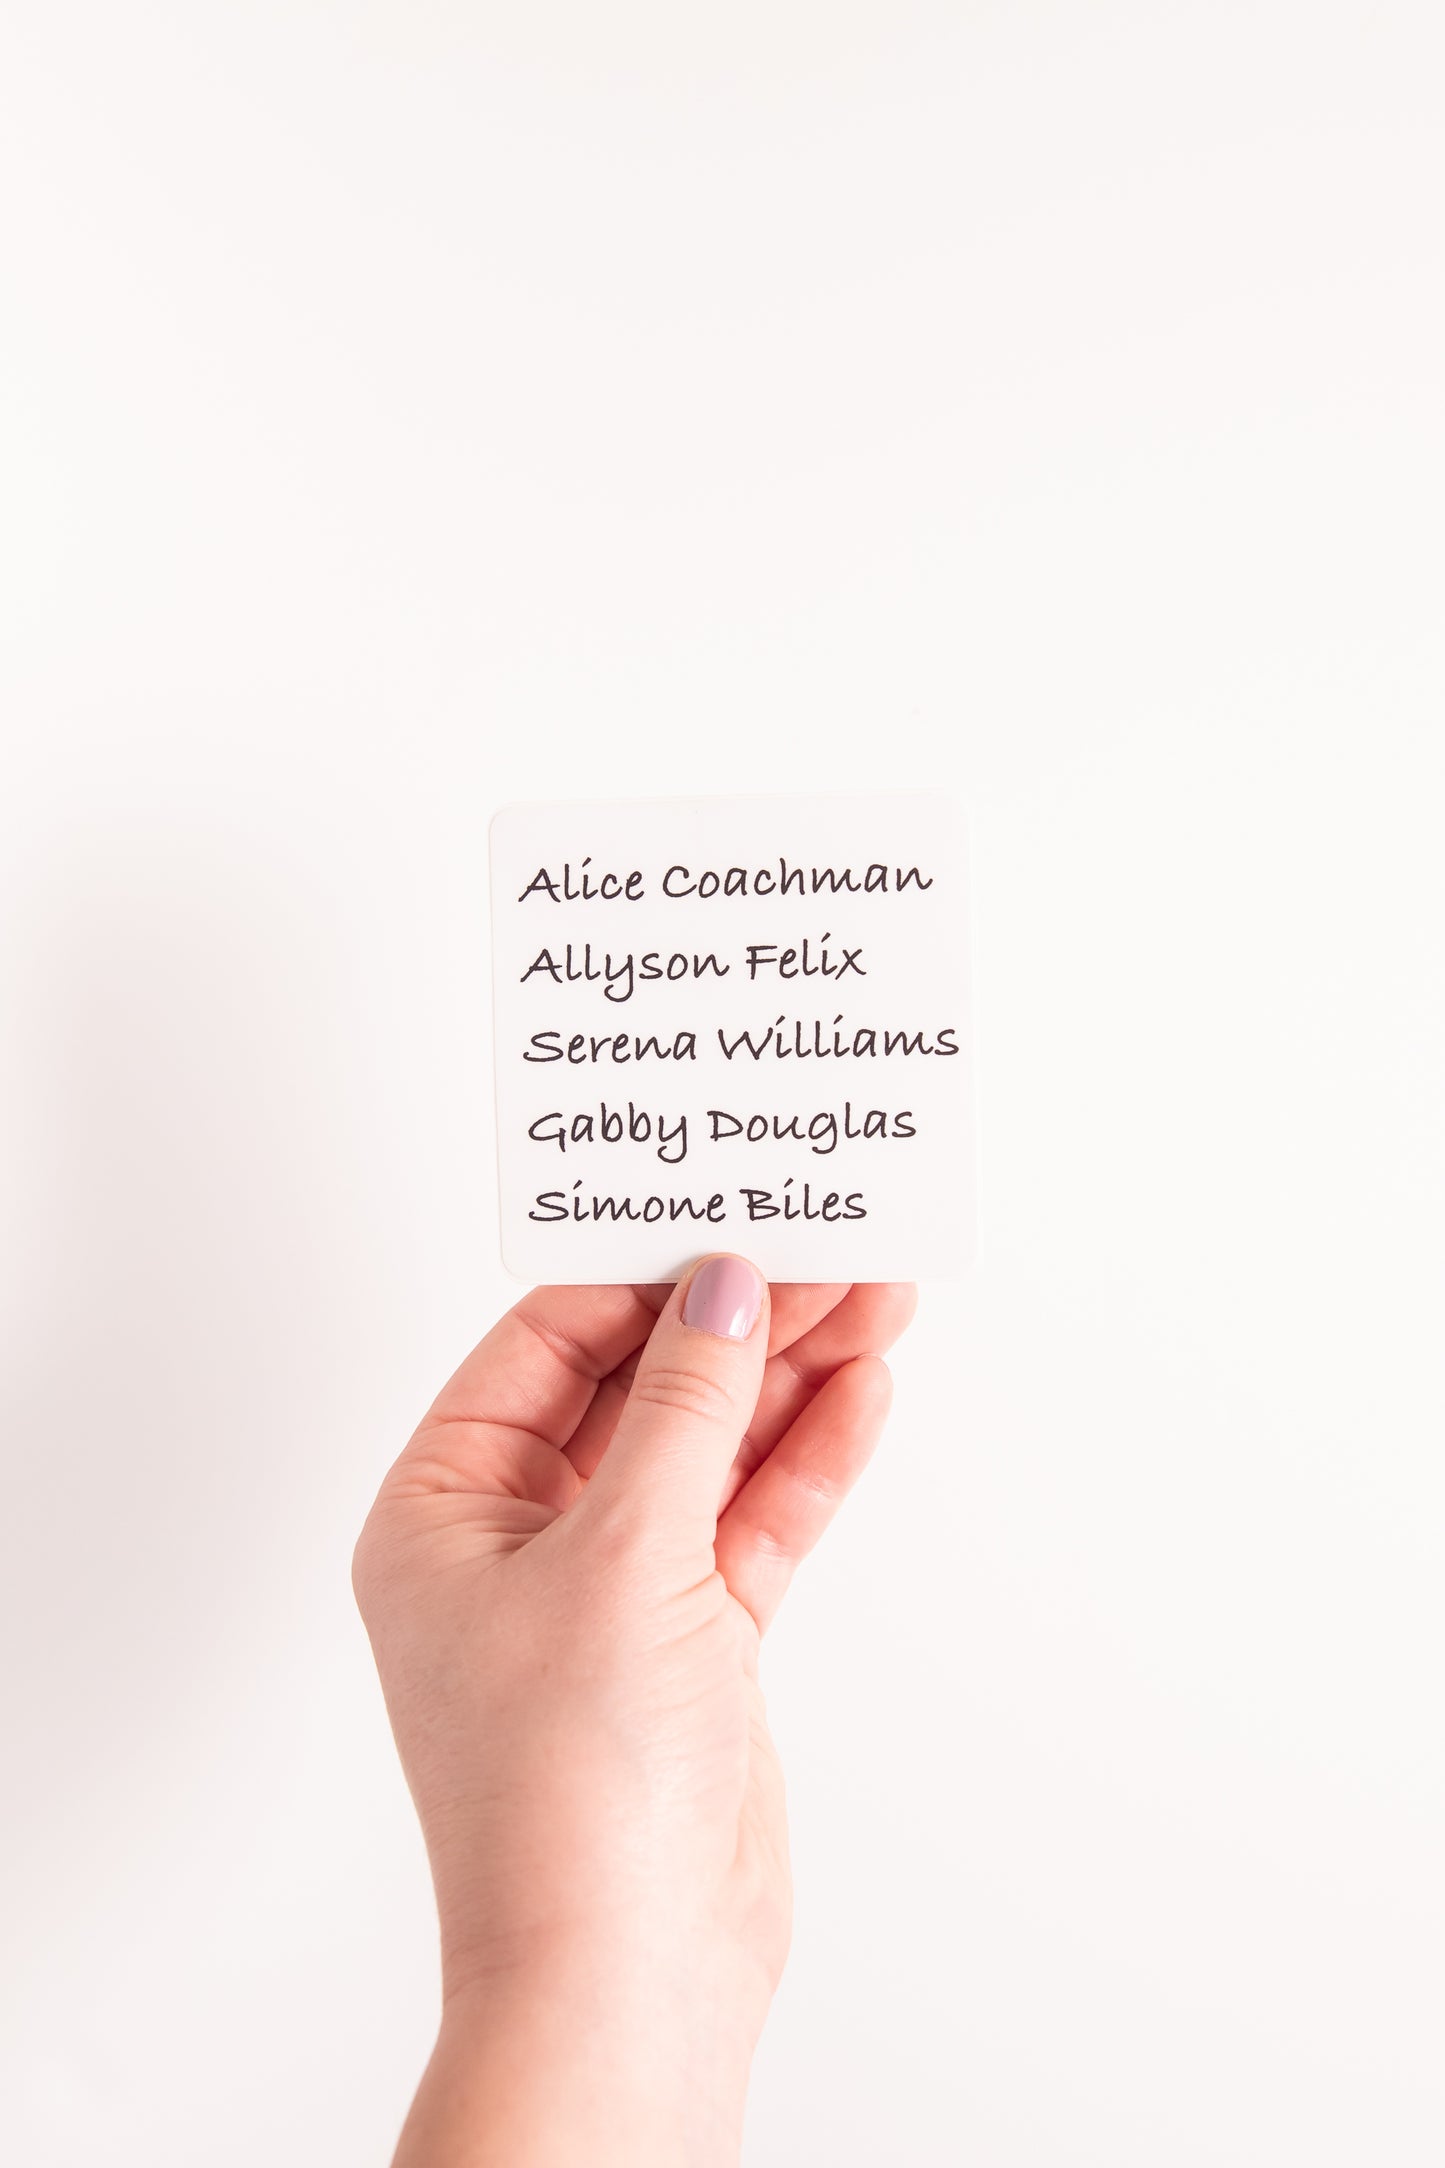 Alice Coachman
Allyson Felix
Serena Williams
Gabby Douglas
Simone Biles